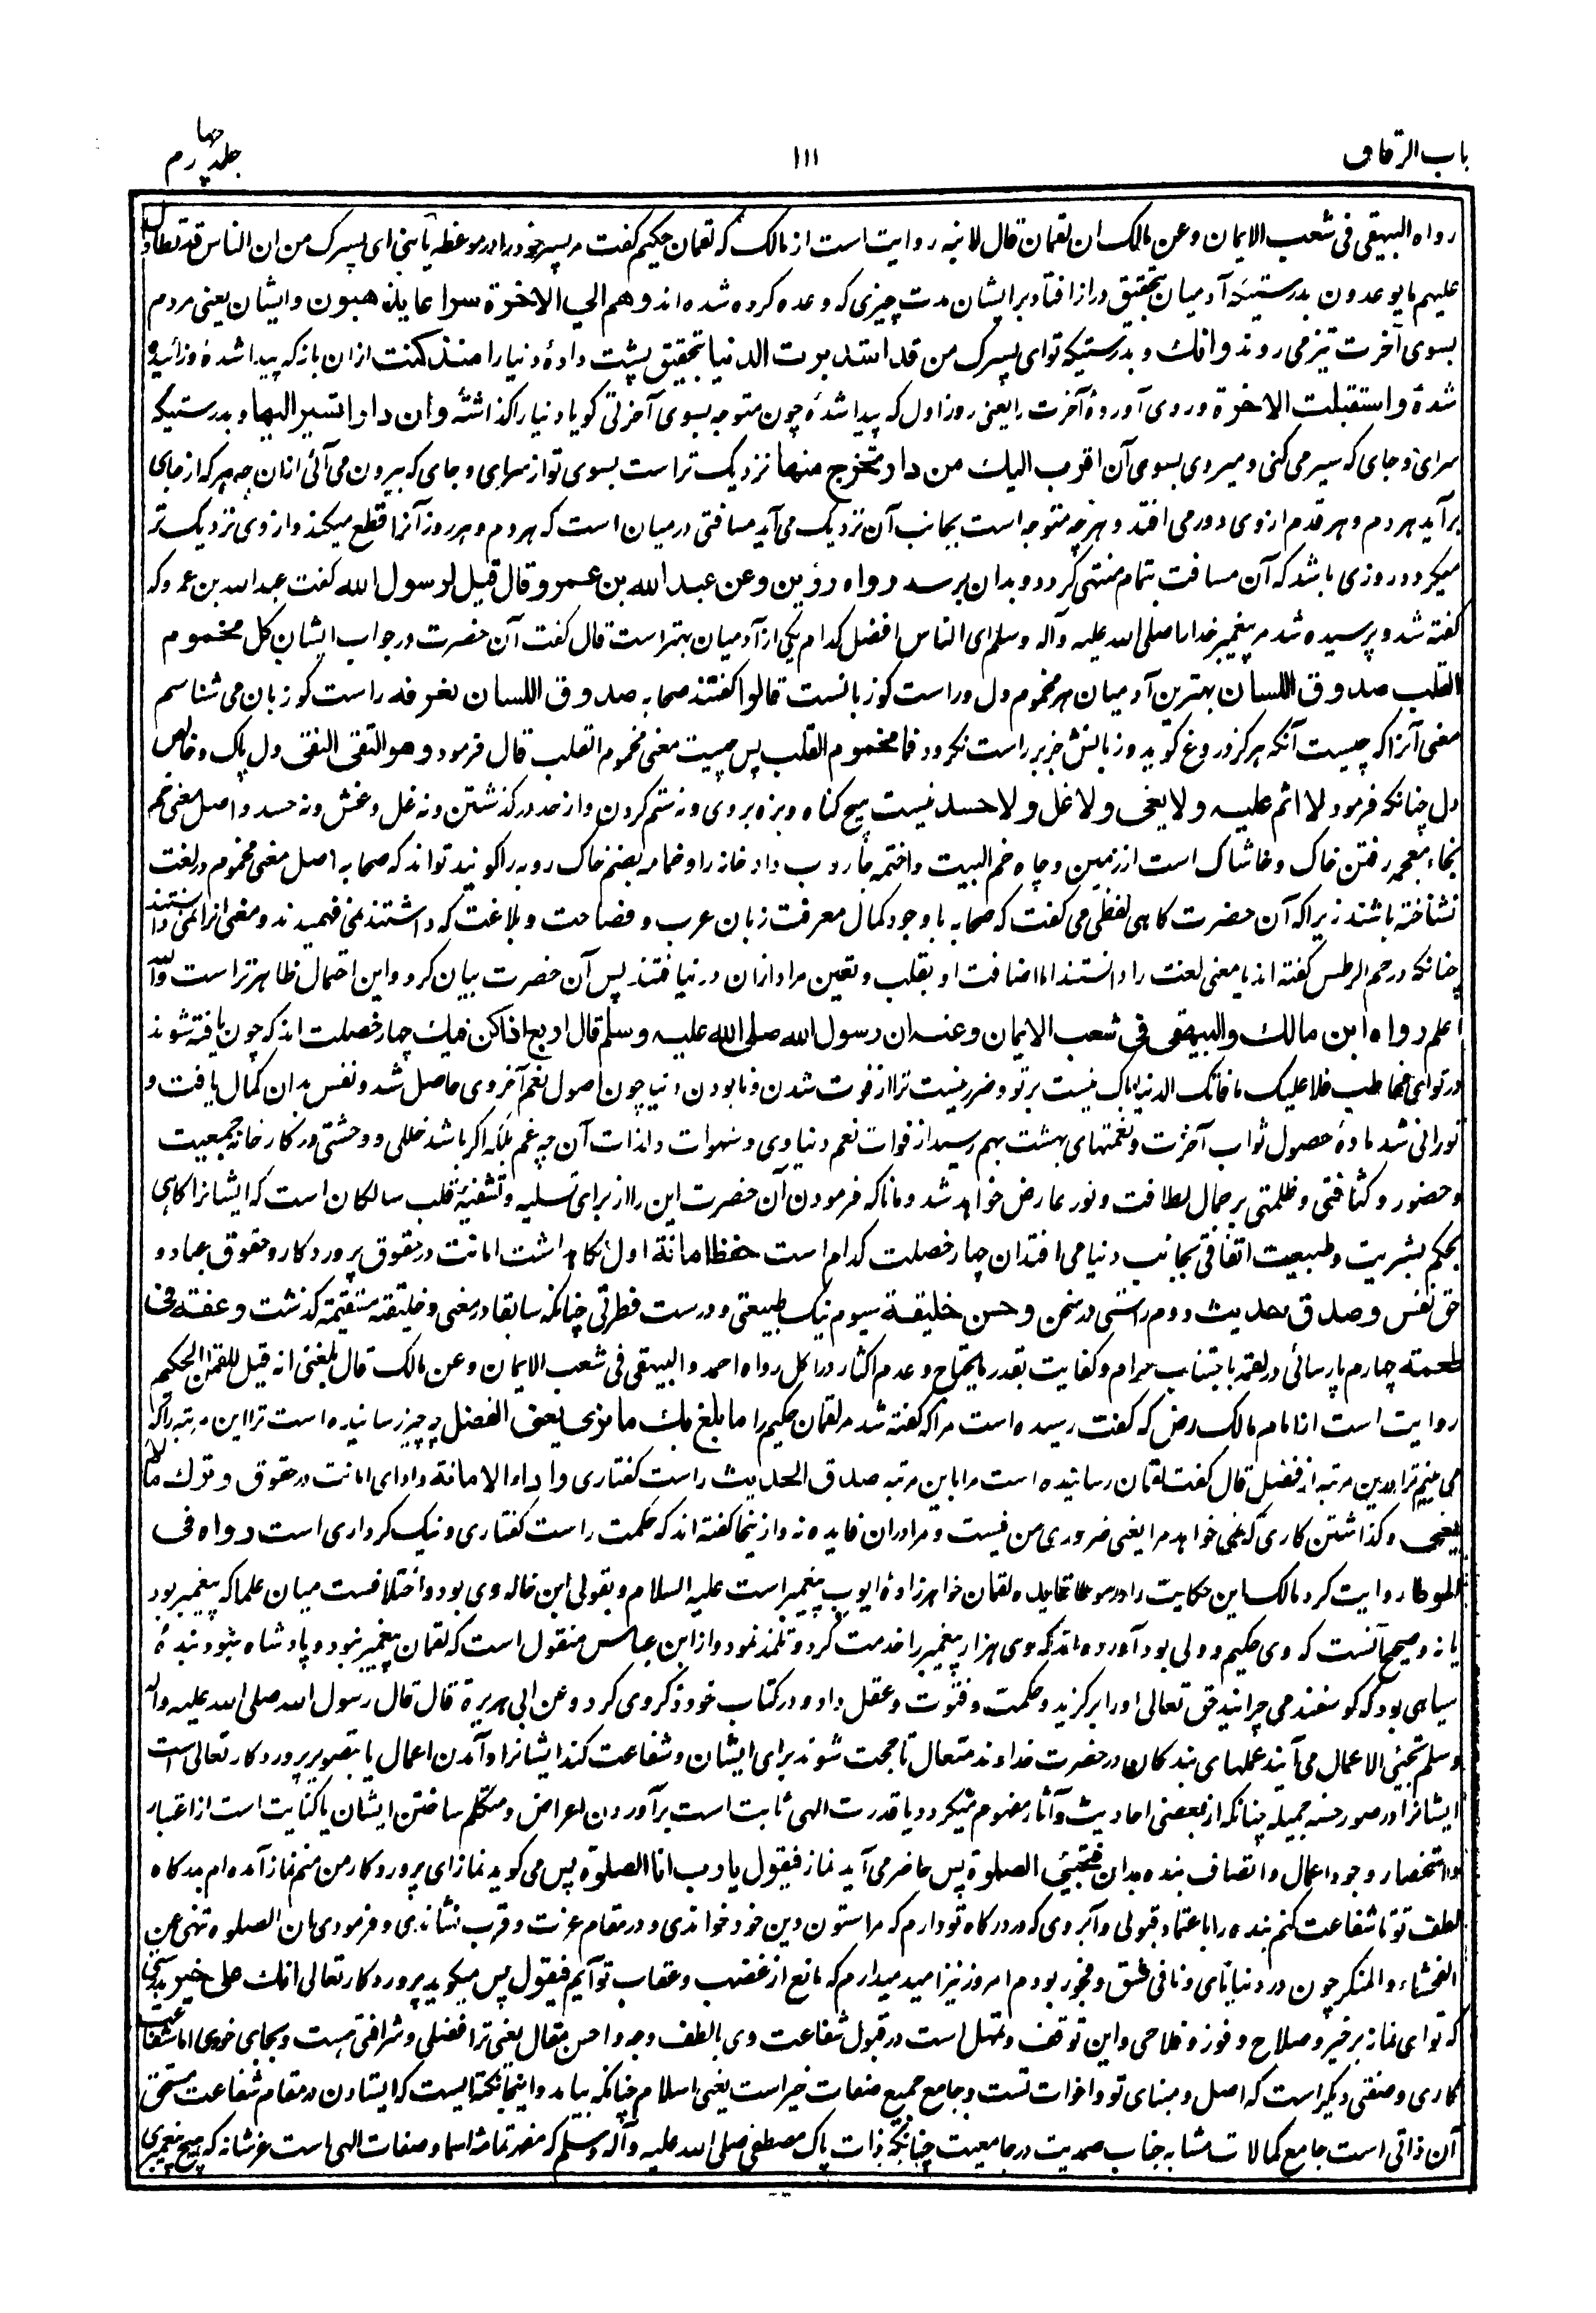 باب الرقاق
۱۱۱
جلد چهارم
رواه البیهقی فی شعب الایمان وعن مالک ان لقمان قال لابنه روایت است از مالک که لقمان حکیم گفت مر پسر خود را در موعظه یا بنی ای پسرک من ان الناس قد تطاول
علیهم ما یوعدون بدرستیکه آدمیان بتحقیق دراز افتاد بر ایشان مدت چیزی که وعده کرده شده اند وهم الی الاخرة سراعا یذهبون و ایشان یعنی مردم
بسوی آخرت تیز می روند وانک و بدرستیکه تو ای پسرک من قد استدبرت الدنیا بتحقیق پشت دادۀ دنیا را منذ کنت ازان باز که پیدا شدۀ و زائیده
شدۀ واستقبلت الاخرة و روی آوردۀ آخرت را یعنی روز اول که پیدا شدۀ چون متوجه بسوی آخرتی گویا دنیا را گذاشتۀ وان دارا تسیر الیها و بدرستیکه
سرای و جای که سیر می کنی و میروی بسوی آن اقرب الیک من دار تخرج منها نزدیک تر است بسوی تو از سرای و جای که بیرون می آئی ازان چه هر که از جای
برآید هر دم و هر قدم از وی دور می افتد و هرچه متوجه است بجانب آن نزدیک می آید مسافتی درمیان است که هر دم و هر روز آنرا قطع میکند و از وی نزدیک تر
میگردد روزی باشد که آن مسافت بتمام منتهی گردد و بدان برسد رواه رزین وعن عبد الله بن عمرو قال قیل لرسول الله گفت عبد الله بن عمرو که
گفته شد و پرسیده شد مر پیغمبر خدا را صلی الله علیه وآله وسلم ای الناس افضل کدام یکی از آدمیان بهتر است قال گفت آن حضرت در جواب ایشان کل مخموم
القلب صدوق اللسان بهترین آدمیان هر مخموم دل و راست گو زبانست قالوا گفتند صحابه صدوق اللسان نعرفه راست گو زبان می شناسم
معنی آنرا که چیست آنکه هرگز دروغ گوید و زبانش جز بر راست نگردد فما مخموم القلب پس چیست معنی مخموم القلب قال فرمود وهو التقی النقی دل پاک و خالص
دل چنانکه فرمود لا اثم علیه ولا بغی ولا غل ولا حسد نیست هیچ گناه و بزه بروی و نه ستم کردن و از حد درگذشتن و نه غل و غش و نه حسد و اصل معنی خم
بخاء معجمه رفتن خاک و خاشاک است از زمین و چاه خم البیت واختمه جاروب داد خانه را و خمامه بضم خاک روبه را گویند تواند که صحابه اصل معنی مخموم در لغت
نشناخته باشند زیرا که آن حضرت گاهی لفظی می گفت که صحابه با وجود کمال معرفت زبان عرب و فصاحت و بلاغت که داشتند نمی فهمیدند و معنی آنرا نمی دانستند
چنانکه در گفته اند یا معنی لغت را دانستند اما اضافت او بقلب و تعین مراد ازان در نیافتند پس آن حضرت بیان کرد و این احتمال ظاهرتر است والله
اعلم رواه ابن مالک والبیهقی فی شعب الایمان وعنه ان رسول الله صلی الله علیه وسلم قال اربع اذا کن فیک چهار خصلت اند که چون یافته شوند
در تو ای مخاطب فلا علیک ما فاتک الدنیا باک نیست بر تو و ضرر نیست ترا از فوت شدن و نابودن دنیا چون اصول نعم آخروی حاصل شد و نفس بدان کمال یافت و
نورانی شد مادۀ حصول ثواب آخرت و نعمتهای بهشت بهم رسید از فوات نعم دنیاوی و شهوات و لذات آن چه غم بلکه اگر باشد خللی و وحشتی در کارخانۀ جمعیت
و حضور و کثافتی و ظلمتی بر جمال لطافت و نور عارض خواهد شد و مانا که فرمودن آن حضرت این را از برای تسلیه و تشفیۀ قلب سالکان است که ایشانرا گاهی
بحکم بشریت و طبیعت اتفاقی بجانب دنیا می افتد ان چهار خصلت کدام است حفظ امانة اول نگاهداشت امانت در حقوق پروردگار و حقوق عباد و
حق نفس وصدق حدیث دوم راستی در سخن وحسن خلیقة سیوم نیک طبیعتی و درست فطرتی چنانکه سابقا در معنی وخلیقته مستقیمة گذشت وعفة فی
طعمة چهارم پارسائی در لقمه باجتناب حرام و کفایت بقدر مایحتاج و عدم اکثار در اکل رواه احمد والبیهقی فی شعب الایمان وعن مالک قال بلغنی انه قیل للقمان الحکیم
روایت است از امام مالک رض که گفت رسیده است مرا که گفته شد مر لقمان حکیم را ما بلغ بک ما نری یعنی الفضل چه چیز رسانیده است ترا این مرتبه را که
می بینم ترا بدین مرتبه از فضیل قال گفت لقمان رسانیده است مرا باین مرتبه صدق الحدیث راست گفتاری واداء الامانة و ادای امانت در حقوق وترک ما لا
یعنی و گذاشتن کاری که نمی خواهد مرا یعنی ضروری من نیست و مرا دران فایده نه و از ینجا گفته اند که حکمت راست گفتاری و نیک کرداری است رواه فی
الموطا روایت کرد مالک این حکایت را در موطا فایده لقمان خواهرزادۀ ایوب پیغمبر است علیه السلام و بقولی ابن خاله وی بود و اختلافست میان علما که پیغمبر بود
یا نه و صحیح آنست که وی حکیم و ولی بود آورده اند که وی هزار پیغمبر را خدمت کرد و تلمذ نمود و از ابن عباس منقول است که لقمان پیغمبر نبود و پادشاه نبود بندۀ
سیاهی بود که گوسفند می چرانید حق تعالی او را برگزید و حکمت و فتوت و عقل داد و در کتاب خود ذکر وی کرد وعن ابی هریرة قال قال رسول الله صلی الله علیه وآله
وسلم تجیئ الاعمال می آیند عملهای بندگان در حضرت خداوند متعال تا حجت شوند برای ایشان و شفاعت کند ایشانرا و آمدن اعمال یا بتصویر پروردگار تعالی است
ایشانرا در صور حسنه جمیله چنانکه از بعضی احادیث و آثار مفهوم میگردد یا قدرت الهی ثابت است برآوردن اعراض و متکلم ساختن ایشان یا کنایت است از اعتبار
و استحضار وجود اعمال و اتصاف بنده بدان فتجیئ الصلوة پس حاضر می آید نماز فیقول یا رب انا الصلوة پس می گوید نماز ای پروردگار من منم نماز آمده ام بدرگاه
لطف تو تا شفاعت کنم بنده را باعتماد قبولی و آبروی که در درگاه تو دارم که مرا ستون دین خود خواندی و در مقام عزت و قرب نشاندی و فرمودی ان الصلوة تنهی عن
الفحشاء والمنکر چون در دنیا نافی فسق و فجور بودم امروز نیز امید میدارم که مانع از غضب و عقاب تو آیم فیقول پس میگوید پروردگار تعالی انک علی خیر بدرستی
که تو ای نماز بر خیر و صلاح و فوز و فلاحی و این توقف و تمهل است در قبول شفاعت وی بالطف وجه و احسن مقال یعنی ترا فضلی و شرافتی هست و بجای خودی اما شفاعت
کاری و صفتی دیگر است که اصل و مبنای تو و اخوات تست و جامع جمیع صفات خیر است یعنی اسلام چنانکه بیاید و اینجا نکته ایست که ایستادن در مقام شفاعت مستحق
آن ذاتی است جامع کمالات مشابه جناب صمدیت در جامعیت چنانکه ذات پاک مصطفی صلی الله علیه وآله وسلم که مظهر تمامۀ اسما و صفات الهی است عز شانه که هیچ پیغمبری